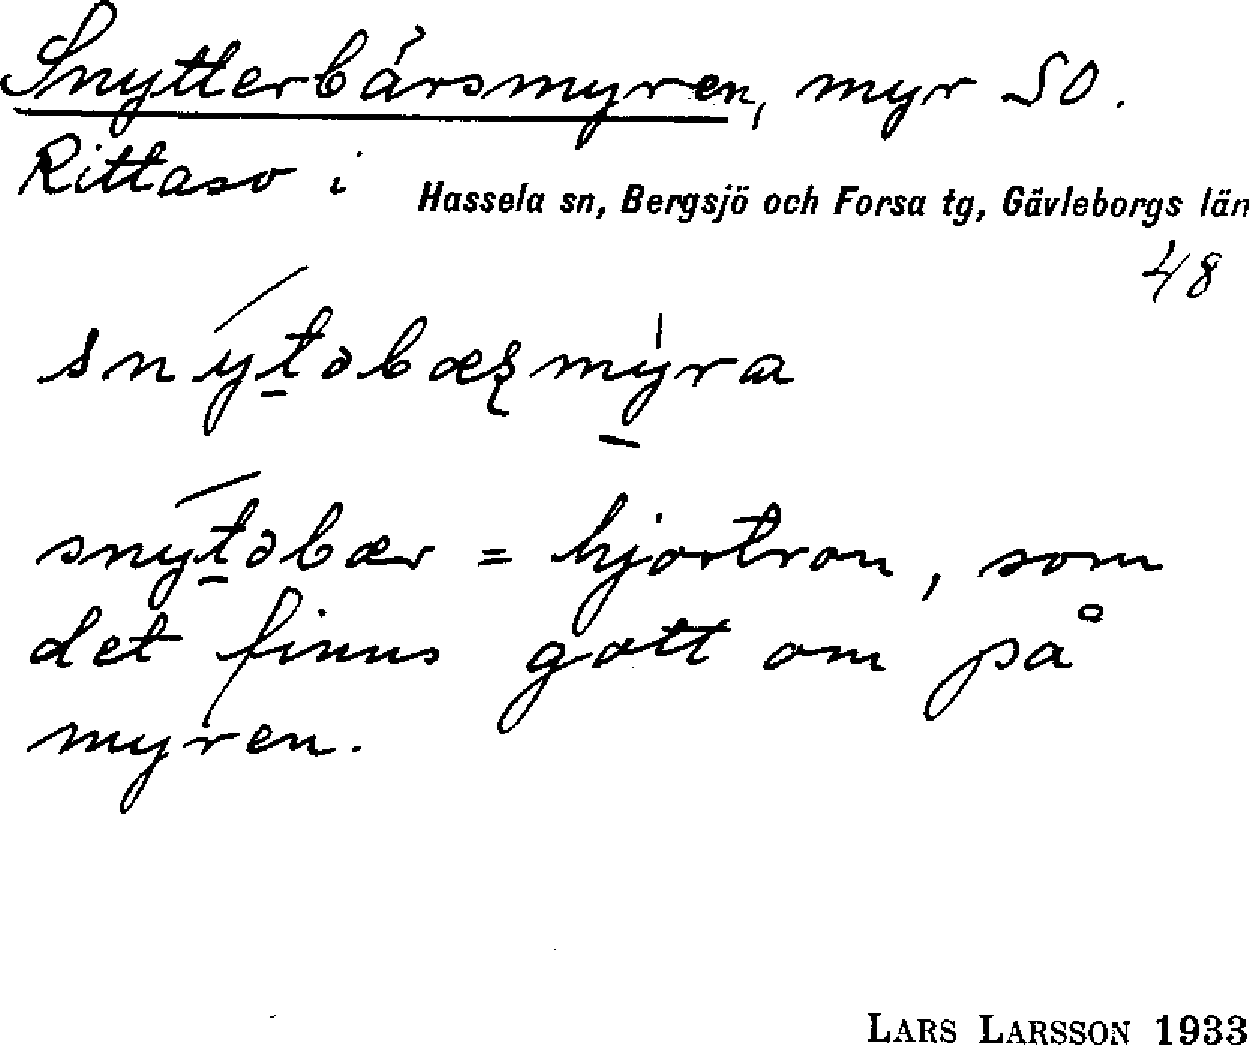 Snytterbärsmyren, myr SO.
Rittaso i Hassela sn, Bergsjö och Forsa tg, Gävleborgs län
48
snýt̲əbæʂmy̲̍ra
snýt̲əbær = hjortron, som
det finns gott om på
myren.
LARS LARSSON 1933